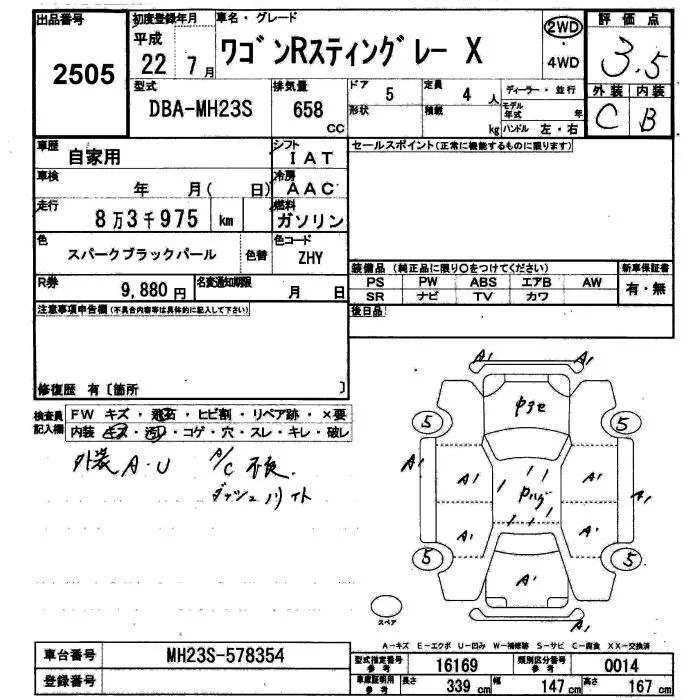 出品番号
2505
初度登録年月
平成
22年 7月
車名・グレード
ワゴンRスティングレー X
2WD
・
4WD
評価点
3.5
外装 内装
C B
型式
DBA-MH23S
排気量
658
CC
ドア
5
定員
4 人
形状
積載
kg
ディーラー・並行
モデル年式 年
ハンドル 左・右
車歴
自家用
シフト
IAT
車検
年 月( 日)
冷房
AAC
走行
8万3千975 km
燃料
ガソリン
色
スパークブラックパール
色替
色コード
ZHY
R券
9,880円
名変通知期限
月 日
セールスポイント(正常に機能するものに限ります)
装備品 (純正品に限り○をつけてください)
PS PW ABS エアB AW
SR ナビ TV カワ
新車保証書
有・無
後日品
注意事項申告欄(不具合内容等は具体的に記入して下さい)
修復歴 有〔箇所 〕
検査員
記入欄
FW キズ・飛石・ヒビ割・リペア跡・×要
内装 キズ・汚レ・コゲ・穴・スレ・キレ・破レ
外装A・U A/C不良.
ダッシュ
A1 A1
5 5
A1 A1
A1 A1
A1 A1
5 5
A1
スペア
A-キズ E-エクボ U-凹み W-補修跡 S-サビ C-腐食 XX-交換済
車台番号
MH23S-578354
登録番号
型式指定番号
参考
16169
類別区分番号
参考
0014
車庫証明用
参考
長さ 339 cm 幅 147 cm 高さ 167 cm